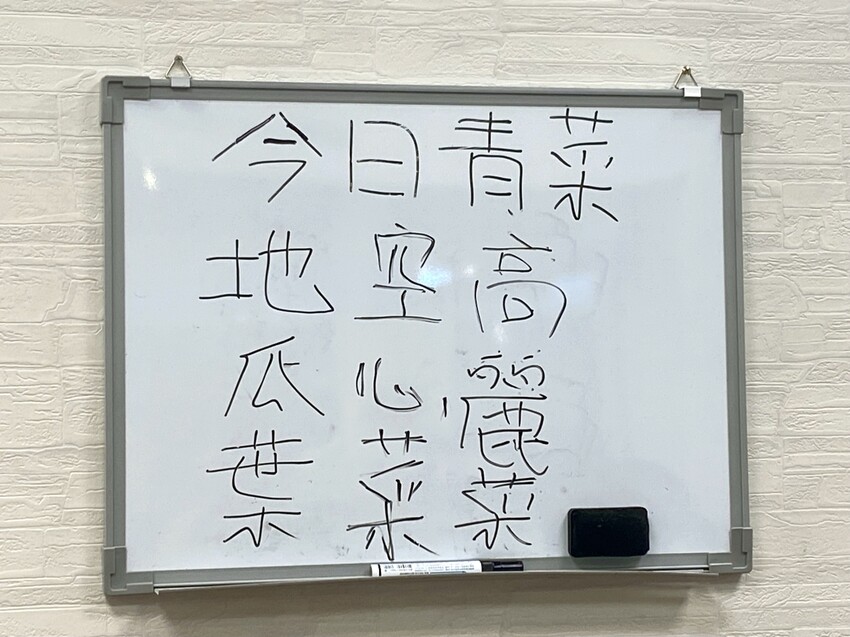 今日青菜
高麗菜
空心菜
地瓜葉